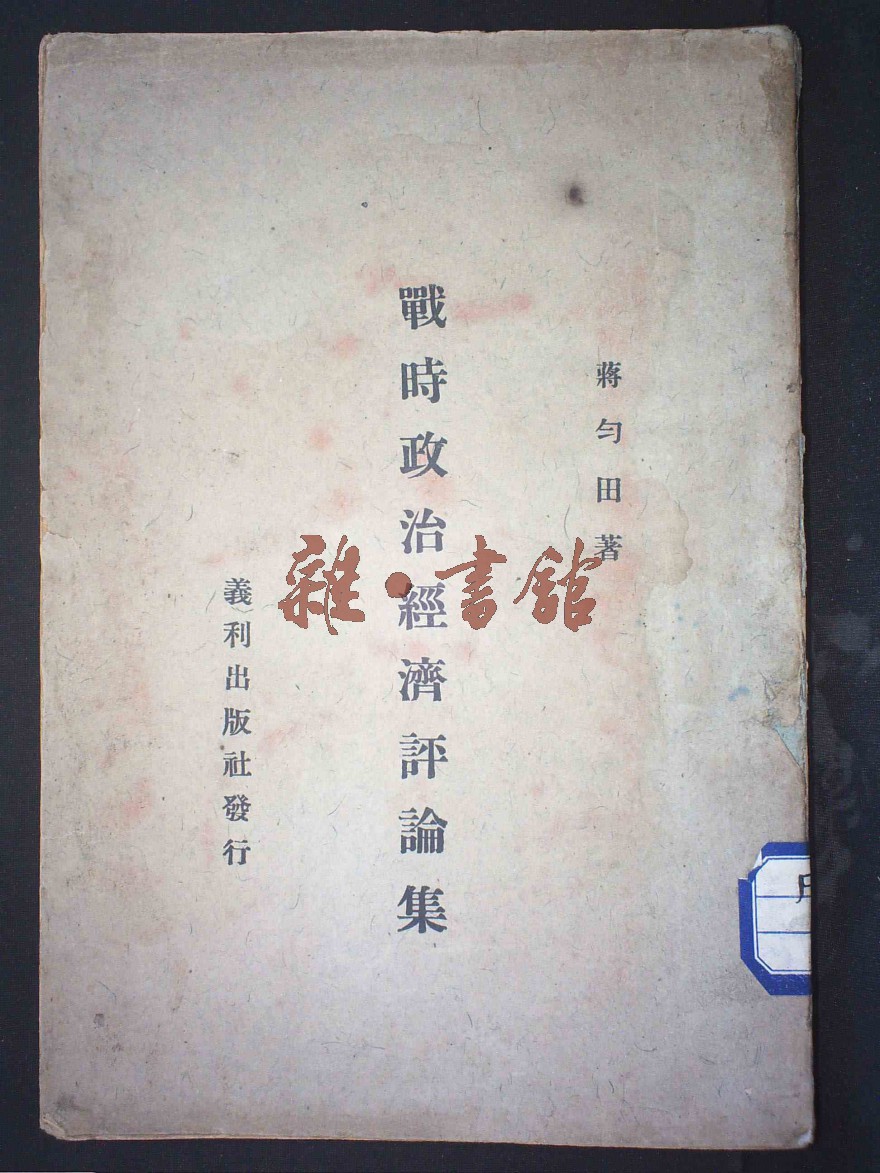 蔣勻田著
戰時政治經濟評論集
義利出版社發行
雜·書館